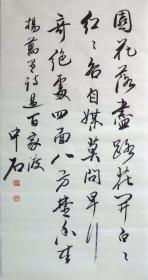 園花落盡路花開白々
紅々各自媒莫問早行
奇絕處四面八方埜香來
楊萬里詩過百家渡
中石